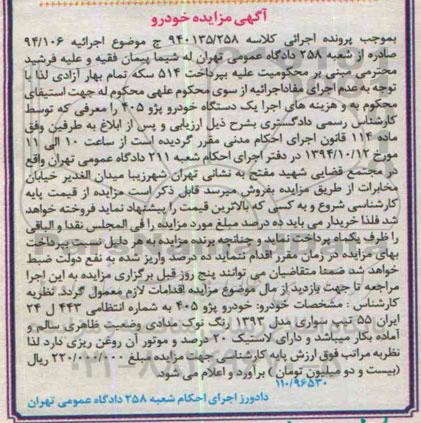 آگهی مزایده خودرو
بموجب پرونده اجرائی کلاسه ۹۴۰۱۳۵/۲۵۸ ج موضوع اجرائیه ۹۴/۱۰۶
صادره از شعبه ۲۵۸ دادگاه عمومی تهران له شیما پیمان فقیه و علیه فرشید
محترمی مبنی بر محکومیت علیه بپرداخت ۵۱۴ سکه تمام بهار آزادی لذا با
توجه به عدم اجرای مفاداجرائیه از سوی محکوم علهی محکوم له جهت استیفای
محکوم به و هزینه های اجرا یک دستگاه خودرو پژو ۴۰۵ را معرفی که توسط
کارشناس رسمی دادگستری بشرح ذیل ارزیابی و پس از ابلاغ به طرفین وفق
ماده ۱۱۴ قانون اجرای احکام مدنی مقرر گردیده است از ساعت ۱۰ الی ۱۱
مورخ ۱۳۹۴/۱۰/۱۲ در دفتر اجرای احکام شعبه ۲۱۱ دادگاه عمومی تهران واقع
در مجتمع قضایی شهید مفتح به نشانی تهران شهرزیبا میدان الغدیر خیابان
مخابرات از طریق مزایده بفروش میرسد قابل ذکر است مزایده از قیمت پایه
کارشناسی شروع و به کسی که بالاترین قیمت را پیشنهاد نماید فروخته خواهد
شد فلذا خریدار می باید ده درصد مبلغ مورد مزایده را فی المجلس نقدا و الباقی
را ظرف یکماه پرداخت نماید و چنانچه برنده مزایده به هر دلیل نسبت بپرداخت
بهای مزایده در زمان مقرر اقدام ننماید ده درصد واریز شده به نفع دولت ضبط
خواهد شد ضمنا متقاضیان می توانند پنج روز قبل برگزاری مزایده به این اجرا
مراجعه تا جهت بازدید از مال موضوع مزایده اقدامات لازم معمول گردد. نظریه
کارشناس : مشخصات خودرو: خودرو پژو ۴۰۵ به شماره انتظامی ۴۴۳ ل ۲۴
ایران ۵۵ تیپ سواری مدل ۱۳۹۳ رنگ نوک مدادی وضعیت ظاهری سالم و
آماده بکار میباشد و دارای لاستیک ۲۰ درصد و موتور آن روغن ریزی دارد لذا
نظریه مراتب فوق ارزش پایه کارشناسی جهت مزایده مبلغ ۲۲۰/۰۰۰/۰۰۰ ریال
(بیست و دو میلیون تومان ) برآورد و اعلام می شود.
۱۱۰/۹۶۵۳۰
دادورز اجرای احکام شعبه ۲۵۸ دادگاه عمومی تهران